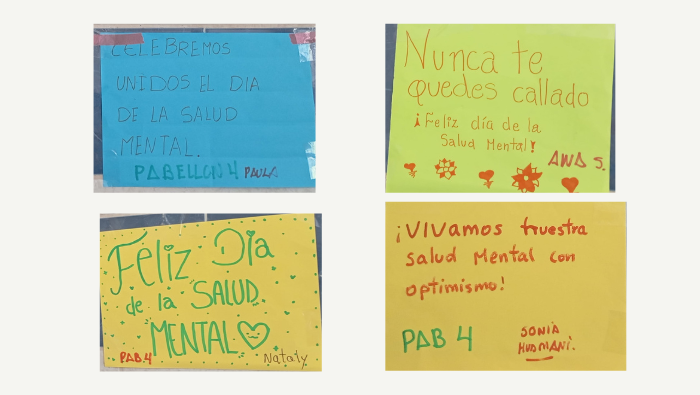 CELEBREMOS
UNIDOS EL DIA
DE LA SALUD
MENTAL.
PABELLON 4 PAULA
Nunca te
quedes callado
¡Feliz día de la
Salud Mental!
ANA S.
Feliz Dia
de la SALUD.
MENTAL
PAB.4
Nataly
¡VIVamos nuestra
salud Mental con
optimismo!
PAB 4
SONIA
HUAMANI.